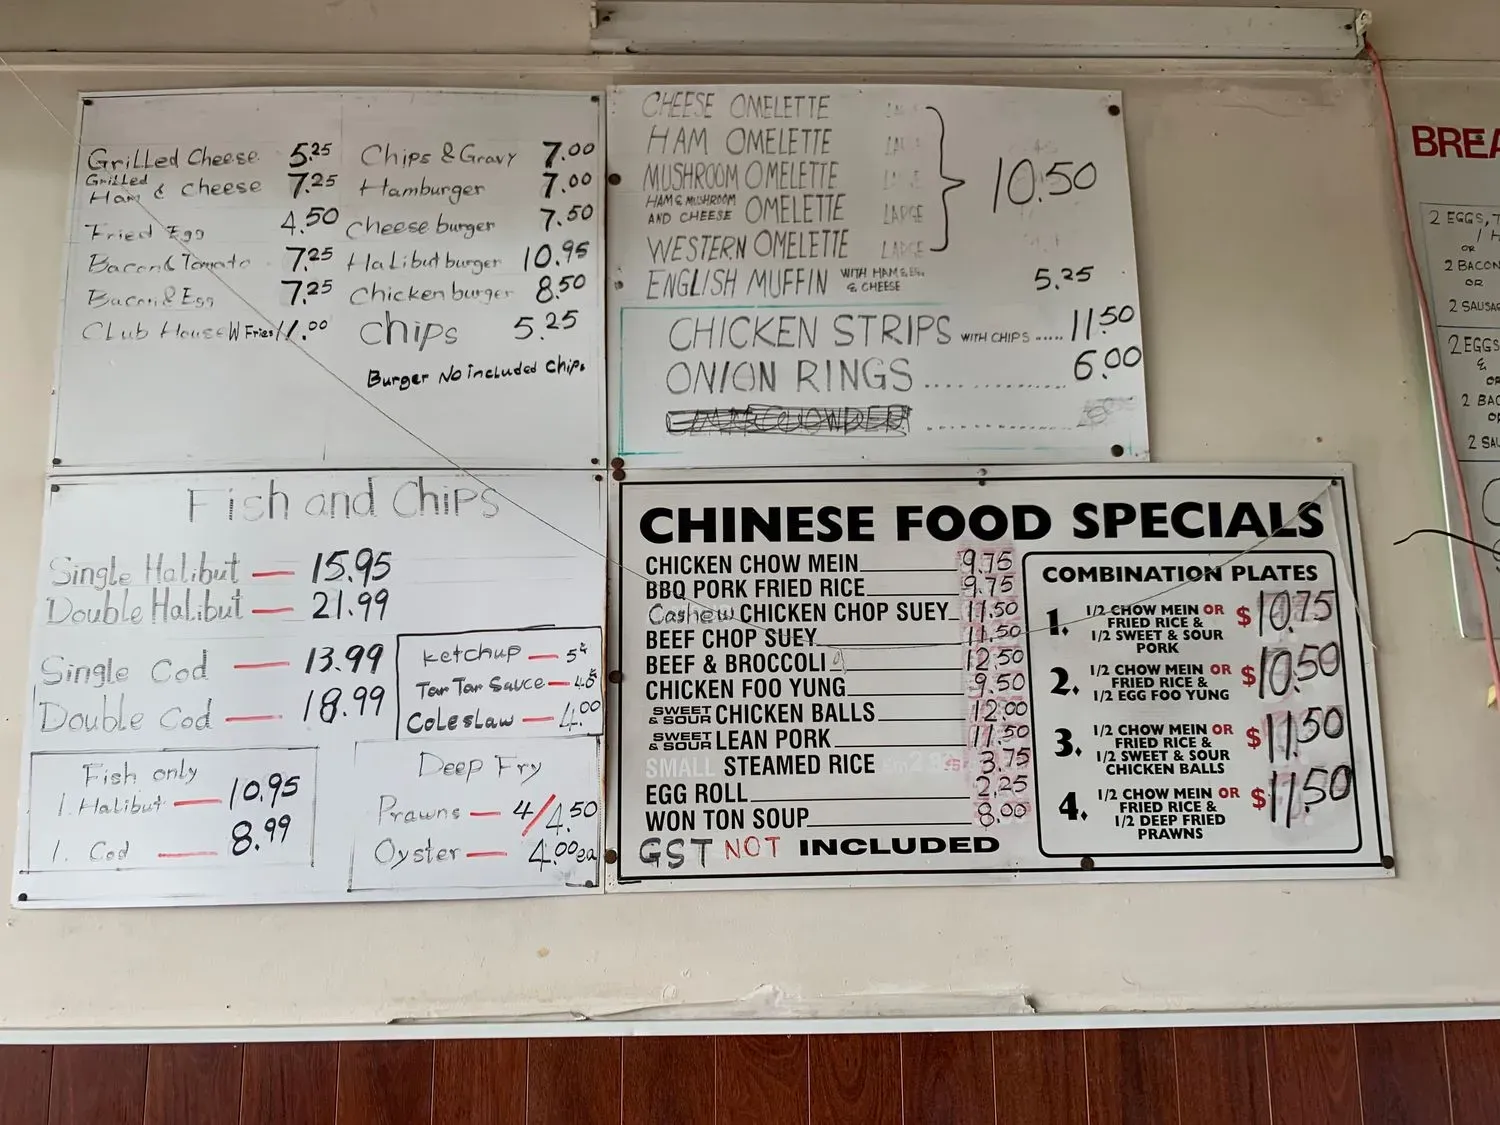 Grilled Cheese 5.25
Grilled Ham & Cheese 7.25
Fried Egg 4.50
Bacon & Tomato 7.25
Bacon & Egg 7.25
Club House W Fries 11.00
Chips & Gravy 7.00
Hamburger 7.00
Cheese burger 7.50
Halibut burger 10.95
Chicken burger 8.50
Chips 5.25
Burger No included Chips
CHEESE OMELETTE
HAM OMELETTE
MUSHROOM OMELETTE
HAM & MUSHROOM AND CHEESE OMELETTE LARGE
WESTERN OMELETTE LARGE
10.50
ENGLISH MUFFIN WITH HAM & & CHEESE 5.25
CHICKEN STRIPS WITH CHIPS ..... 11.50
ONION RINGS ............ 6.00
Fish and Chips
Single Halibut — 15.95
Double Halibut — 21.99
Single Cod — 13.99
Double Cod — 18.99
Ketchup — 5¢
Tar Tar Sauce —
Coleslaw — 4.00
Fish only
1. Halibut — 10.95
1. Cod — 8.99
Deep Fry
Prawns — 4/4.50
Oyster — 4.00ea
CHINESE FOOD SPECIALS
CHICKEN CHOW MEIN 9.75
BBQ PORK FRIED RICE 9.75
Cashew CHICKEN CHOP SUEY 11.50
BEEF CHOP SUEY 11.50
BEEF & BROCCOLI 12.50
CHICKEN FOO YUNG 9.50
SWEET & SOUR CHICKEN BALLS 12.00
SWEET & SOUR LEAN PORK 11.50
SMALL STEAMED RICE 3.75
EGG ROLL 2.25
WON TON SOUP 8.00
GST NOT INCLUDED
COMBINATION PLATES
1. 1/2 CHOW MEIN OR
FRIED RICE &
1/2 SWEET & SOUR
PORK
$10.75
2. 1/2 CHOW MEIN OR
FRIED RICE &
1/2 EGG FOO YUNG
$10.50
3. 1/2 CHOW MEIN OR
FRIED RICE &
1/2 SWEET & SOUR
CHICKEN BALLS
$11.50
4. 1/2 CHOW MEIN OR
FRIED RICE &
1/2 DEEP FRIED
PRAWNS
$11.50
BREA
2 EGGS, T
OR
2 BACON
OR
2 SAUSAG
2 EGGS
&
OR
2 BAC
OR
2 SAU